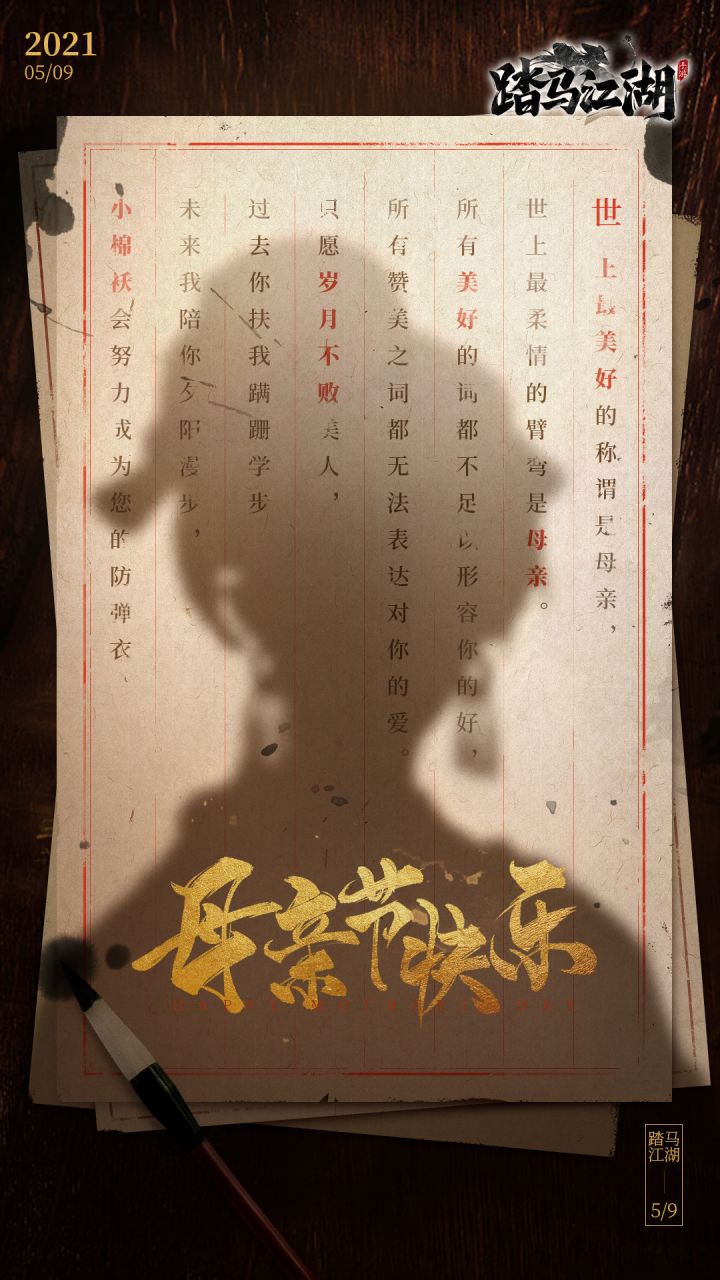 2021
05/09
踏马江湖
手游
世上最美好的称谓是母亲，
世上最柔情的臂弯是母亲。
所有美好的词都不足以形容你的好，
所有赞美之词都无法表达对你的爱。
只愿岁月不败美人，
过去你扶我蹒跚学步
未来我陪你夕阳漫步，
小棉袄会努力成为您的防弹衣、
母亲节快乐
HAPPY MOTHER'S DAY
踏马
江湖
5/9